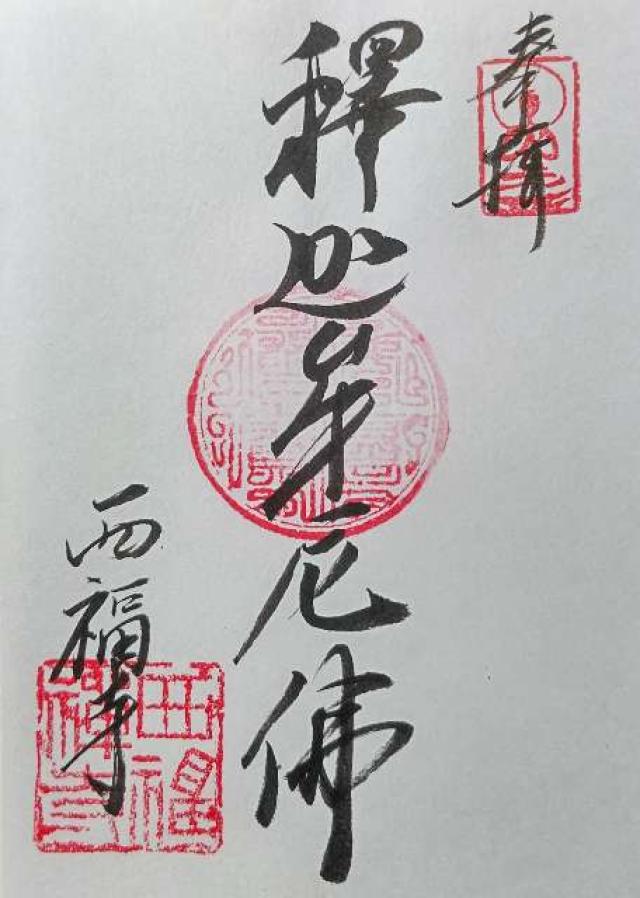 奉拝
釋迦牟尼佛
西福寺
西福禅寺